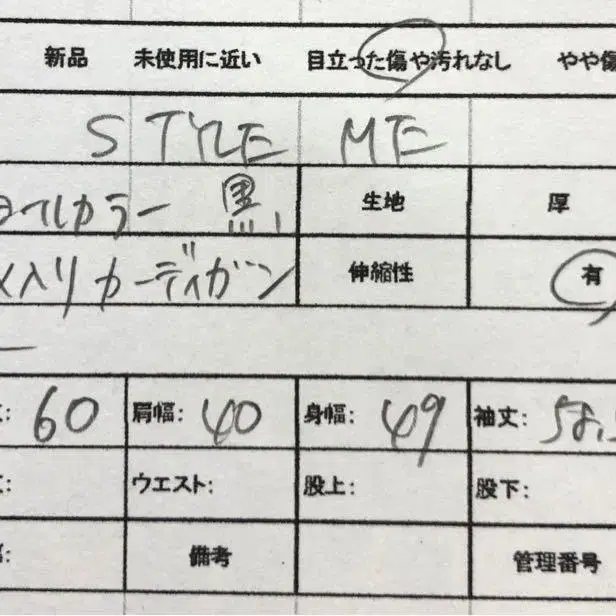 新品 未使用に近い 目立った傷や汚れなし やや傷
STYLE ME
ールカラー 黒 生地 厚
入りカーディガン 伸縮性 有
: 60 肩幅: 40 身幅: 49 袖丈: 58.
: ウエスト: 股上: 股下:
: 備考 管理番号